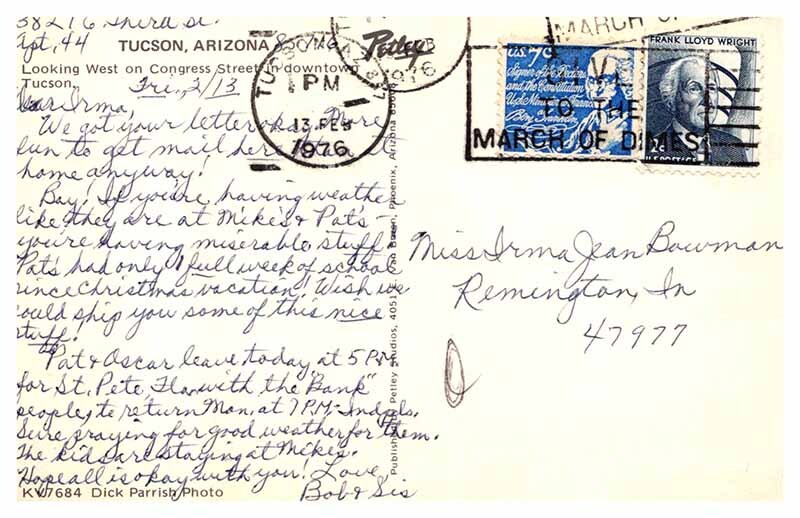 Apt. 44
TUCSON, ARIZONA
Looking West on Congress Street in downtown
Tucson.
Fri., 2/13
Dear Irma,
We got your letter o.k. More
fun to get mail here than at
home anyway!
Boy! If you're having weather
like they are at Mike's & Pat's -
you're having miserable stuff.
Pat's had only 1 full week of school
since Christmas vacation! Wish we
could ship you some of this nice
stuff!
Pat & Oscar leave today at 5 P.M.
for St. Pete, Fla. with the "Bank"
people, to return Mon. at 7 P.M. - Indpls.
Sure praying for good weather for them.
The kids are staying at Mikes.
Hope all is okay with you! Love,
Bob & Sis
KV7684 Dick Parrish Photo
Petley
1976
TUCSON
PM
13 FEB
1976
Published by Petley Studios, 4051 E. Van Buren, Phoenix, Arizona 85008
MARCH OF
GIVE
TO THE
MARCH OF DIMES
U.S. 7c
Signer of the Declaration
and the Constitution
U.S. Minister to France
Benj. Franklin
FRANK LLOYD WRIGHT
2c
U.S. POSTAGE
Miss Irma Jean Bowman
Remington, In
47977